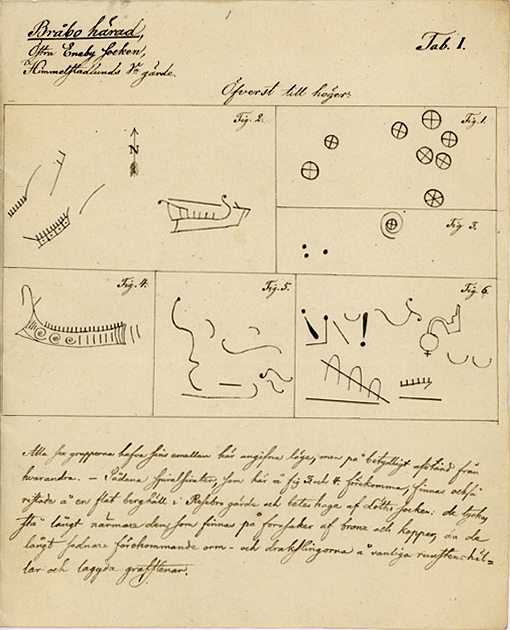 Bråbo härad,
Östra Eneby socken,
Himmelstadlunds V. gärde.
Tab. I.
Öfverst till höger:
Fig. 2.
Fig. 1.
N
Fig. 3.
Fig. 4.
Fig. 5.
Fig. 6.
Alla här grupperna hafva sins emellan här angifna läge, men på betydligt afstånd från
hvarandra. – Sådana spiralsirater, som här å fig. 3 och 4 förekomma, finnas också
ristade å en flat berghäll i gärde och beteshage af Löths socken: de tyckas
långt närmare dem, som finnas på fornsaker af brons och koppar, än de
långt sednare förekommande orm- och drakslingorna å vanliga runstenshäl-
lar och laggda grafstenar.